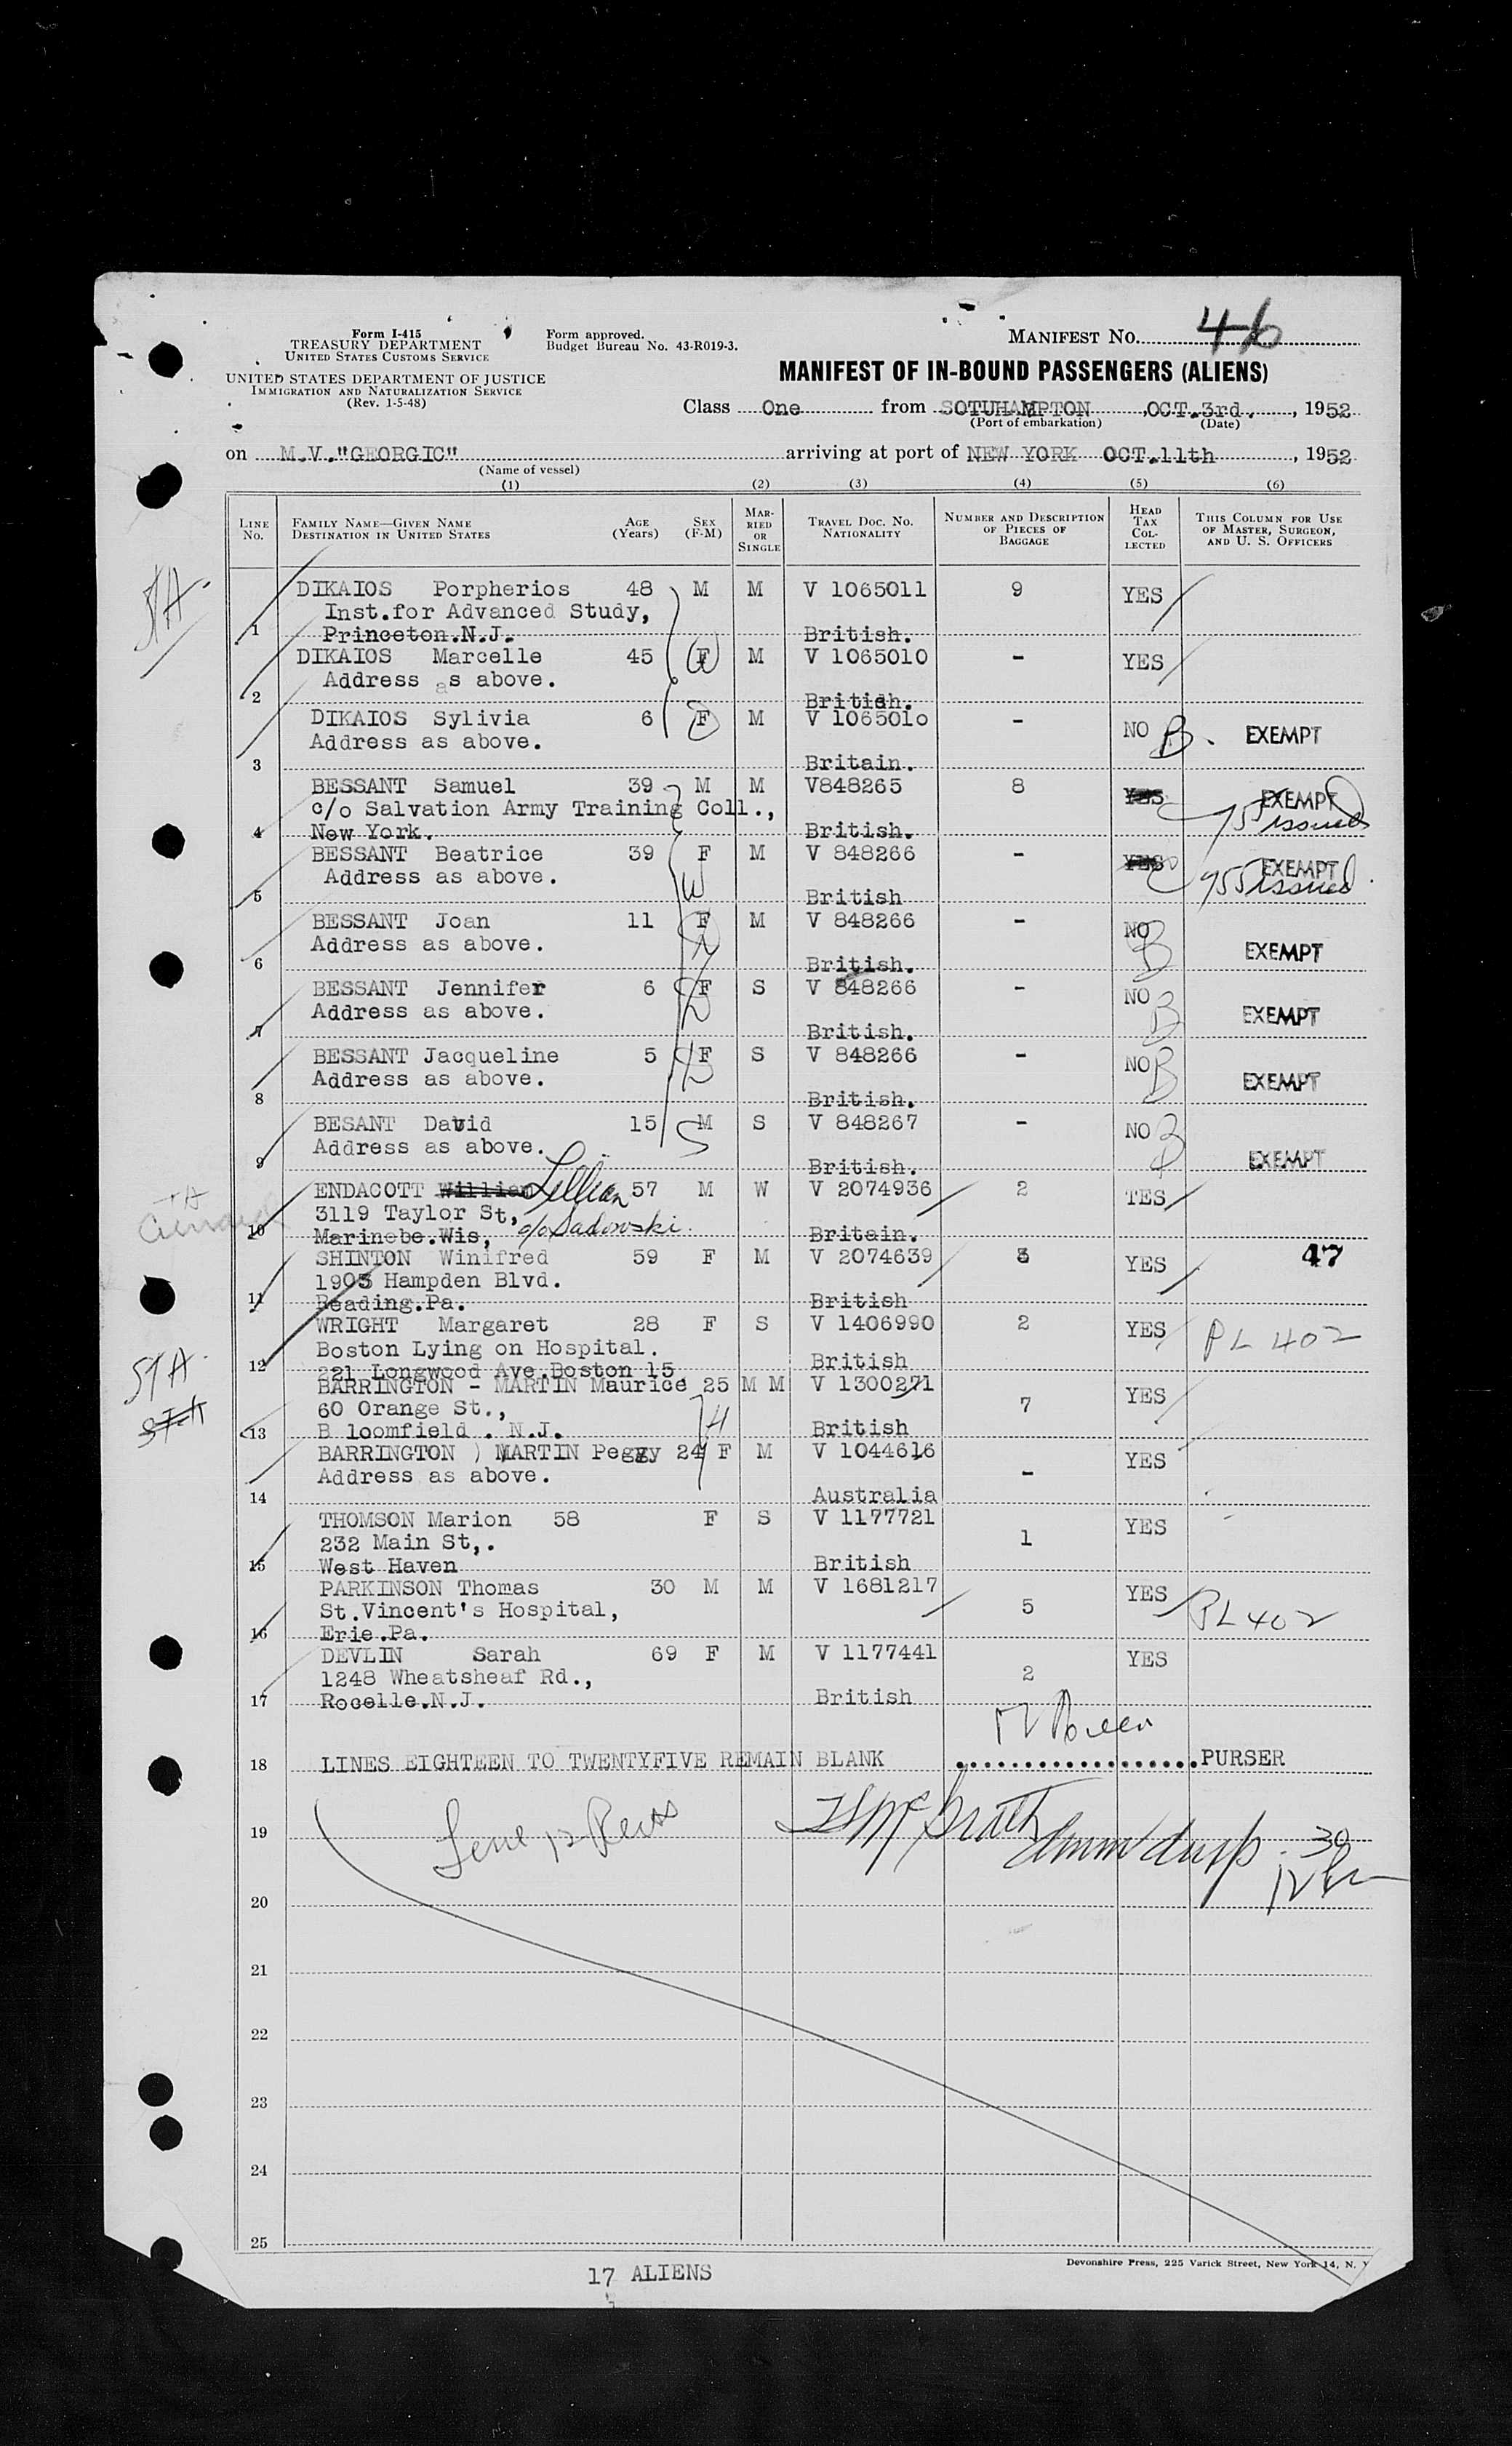 Form I-415
TREASURY DEPARTMENT
UNITED STATES CUSTOMS SERVICE
UNITED STATES DEPARTMENT OF JUSTICE
IMMIGRATION AND NATURALIZATION SERVICE
(Rev. 1-5-48)
Form approved.
Budget Bureau No. 43-R019-3.
MANIFEST NO. 46
MANIFEST OF IN-BOUND PASSENGERS (ALIENS)
Class One from SOTUHAMPTON, OCT. 3rd., 1952
(Port of embarkation) (Date)
on M.V."GEORGIC" arriving at port of NEW YORK OCT.11th, 1952
(Name of vessel)
(1) (2) (3) (4) (5) (6)
LINE No. FAMILY NAME—GIVEN NAME DESTINATION IN UNITED STATES AGE (Years) SEX (F-M) MARRIED OR SINGLE TRAVEL DOC. NO. NATIONALITY NUMBER AND DESCRIPTION OF PIECES OF BAGGAGE HEAD TAX COLLECTED THIS COLUMN FOR USE OF MASTER, SURGEON, AND U. S. OFFICERS
DIKAIOS Porpherios 48 M M V 1065011 9 YES
Inst.for Advanced Study,
1 Princeton.N.J. British.
DIKAIOS Marcelle 45 F M V 1065010 - YES
Address as above.
2 Britidh.
DIKAIOS Sylivia 6 F M V 106501o - NO B. EXEMPT
Address as above.
3 Britain.
BESSANT Samuel 39 M M V848265 8 YES EXEMPT
c/o Salvation Army Training Coll.,
issued
4 New York. British.
BESSANT Beatrice 39 F M V 848266 - YES EXEMPT
Address as above. 955 issued
5 British
BESSANT Joan 11 F M V 848266 - NO B EXEMPT
Address as above.
6 British.
BESSANT Jennifer 6 F S V 848266 - NO B EXEMPT
Address as above.
7 British.
BESSANT Jacqueline 5 F S V 848266 - NO B EXEMPT
Address as above.
8 British.
BESANT David 15 M S V 848267 - NO B EXEMPT
Address as above.
9 British.
ENDACOTT William Lillian 57 M W V 2074936 2 TES
3119 Taylor St,
10 Marinebe.Wis, c/o Sadowski. Britain.
SHINTON Winifred 59 F M V 2074639 3 YES 47
1903 Hampden Blvd.
11 Reading.Pa. British
WRIGHT Margaret 28 F S V 1406990 2 YES PL 402
Boston Lying on Hospital.
12 221 Longwood Ave.Boston 15. British
STA.
BARRINGTON - MARTIN Maurice 25 M M V 1300271 7 YES
60 Orange St.,
13 B loomfield . N.J. British
BARRINGTON ) MARTIN Peggy 24 F M V 1044616 - YES
Address as above.
14 Australia
THOMSON Marion 58 F S V 1177721 1 YES
232 Main St,.
15 West Haven British
PARKINSON Thomas 30 M M V 1681217 5 YES PL 402
St.Vincent's Hospital,
16 Erie.Pa.
DEVLIN Sarah 69 F M V 1177441 2 YES
1248 Wheatsheaf Rd.,
17 Rocelle.N.J. British
18 LINES EIGHTEEN TO TWENTYFIVE REMAIN BLANK ..................PURSER
19
20
21
22
23
24
25
Devonshire Press, 225 Varick Street, New York 14, N. Y
17 ALIENS